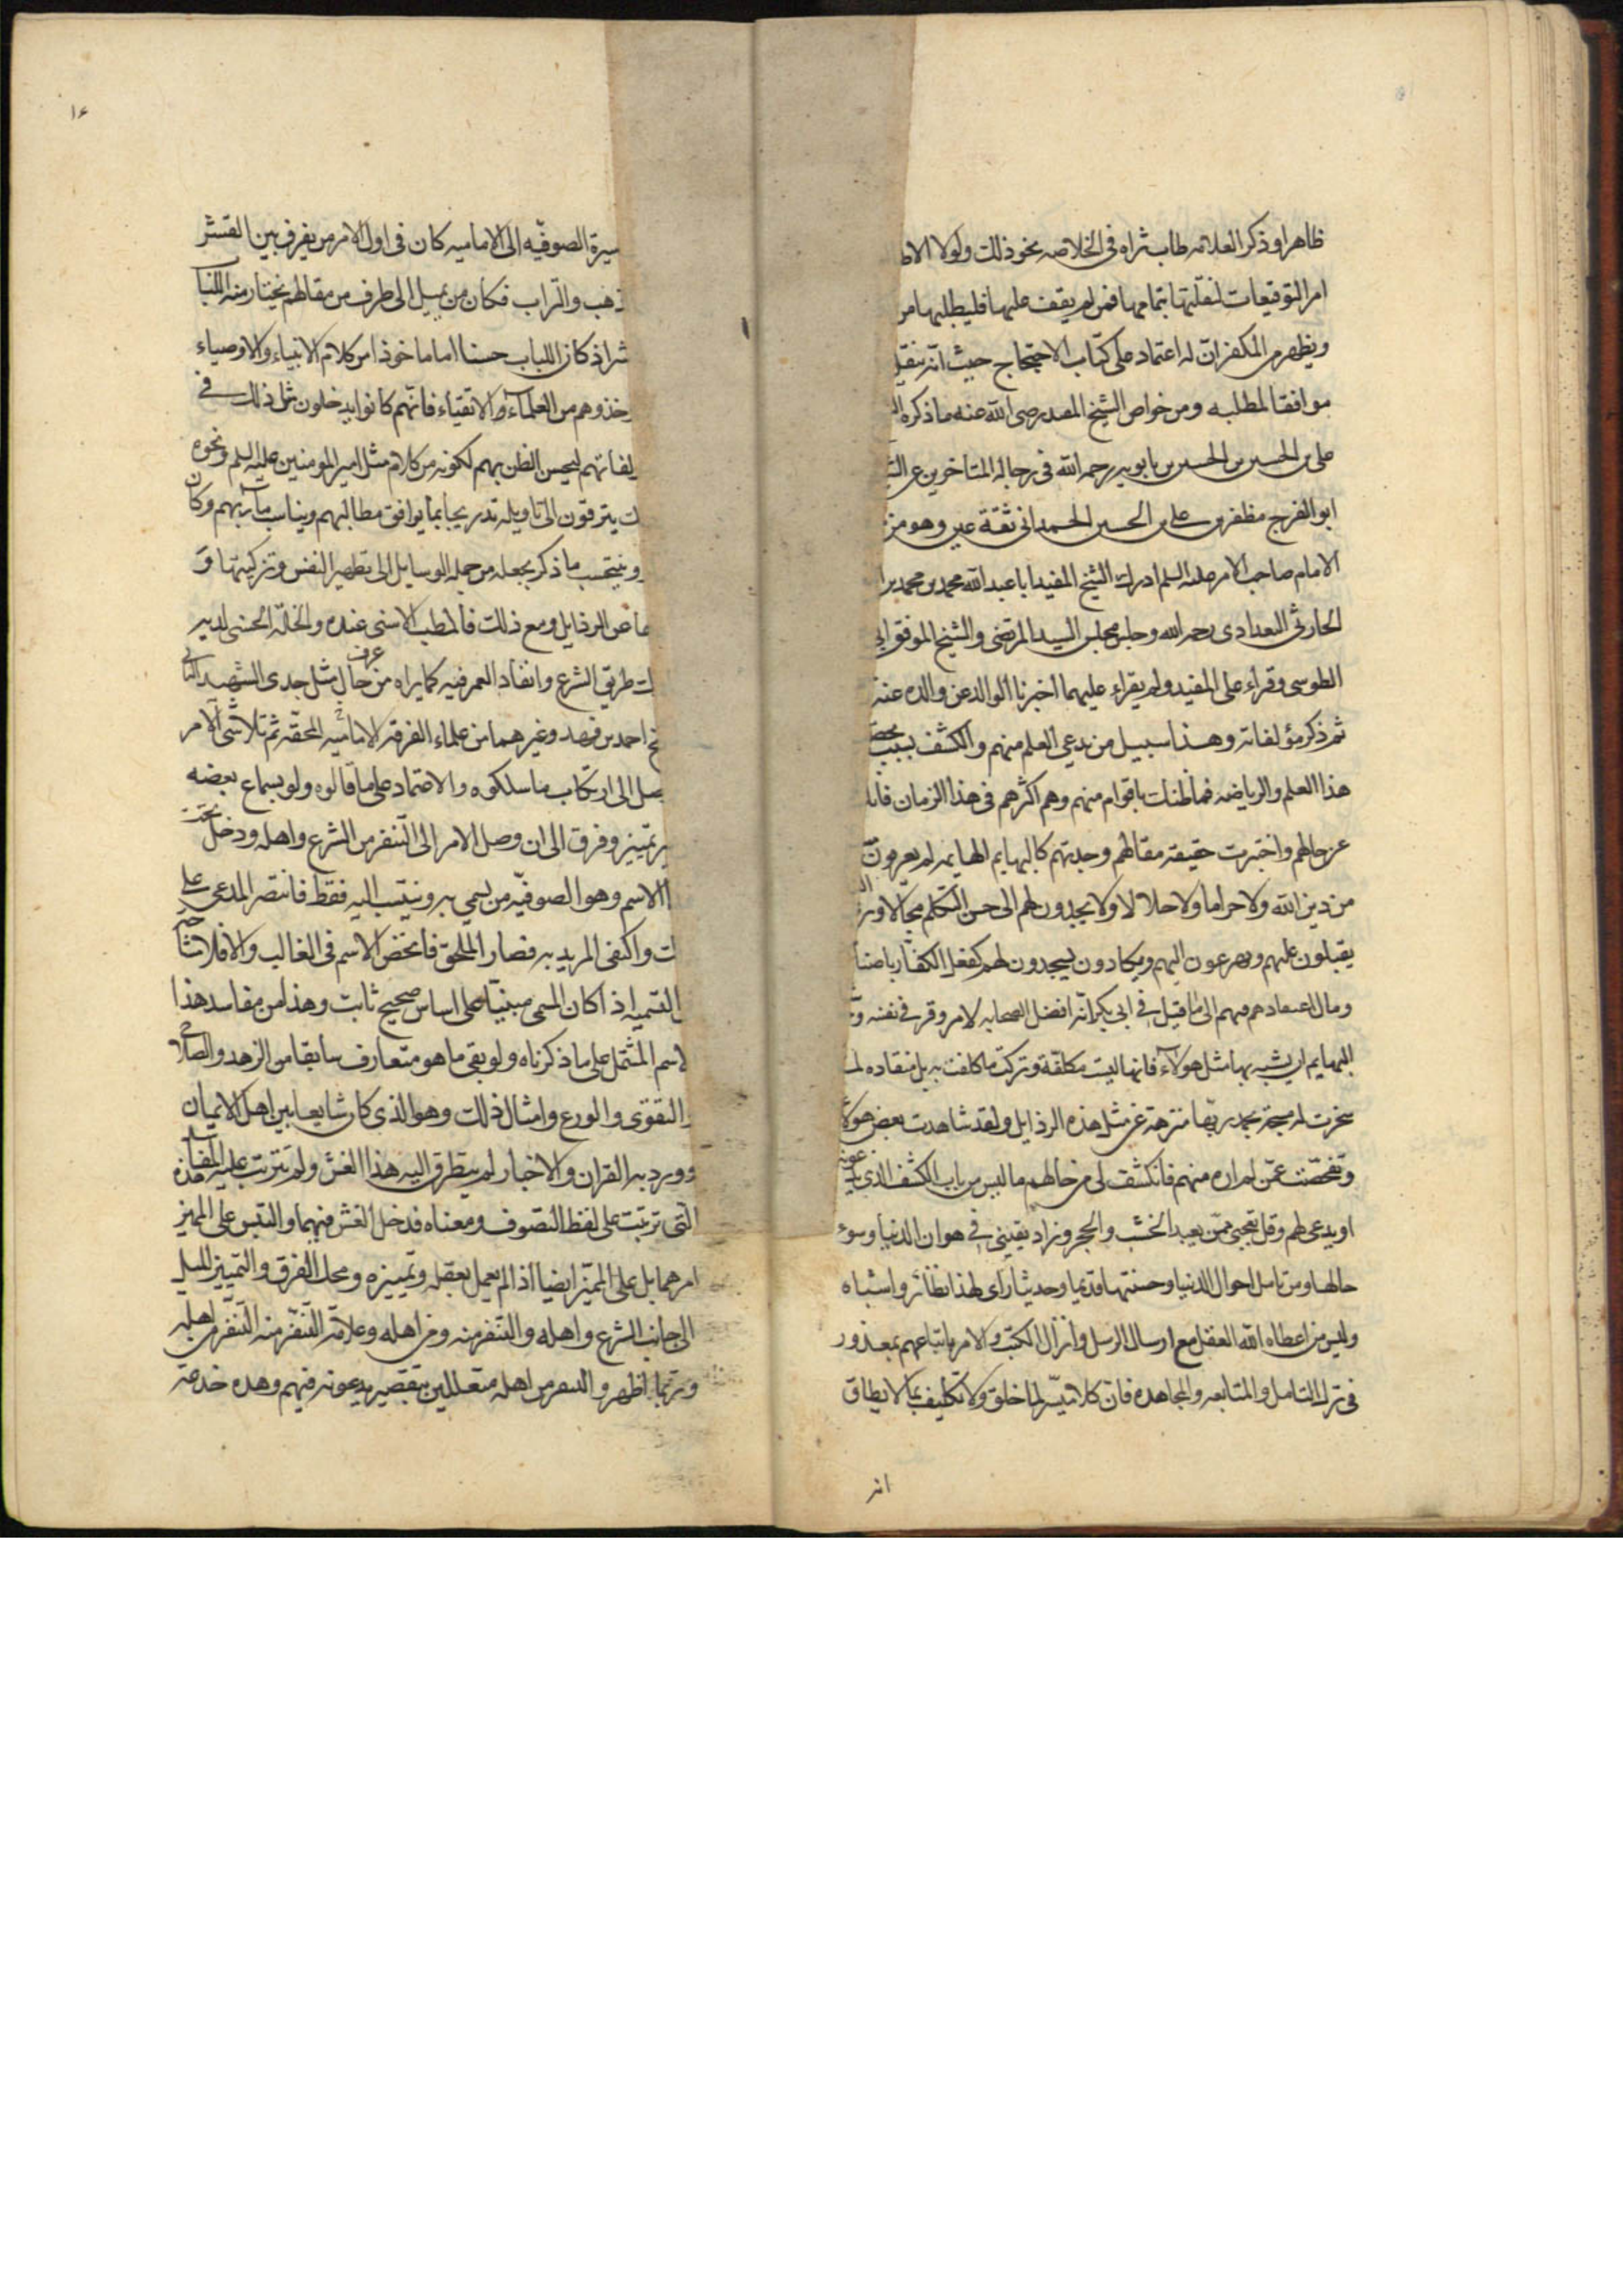 ظاهرا وذكر العلامه طاب ثراه فى الخلاصه نحو ذلك ولولا
امر التوقيعات لنقلتها بتمامها فمن لم يقف عليها فليطلبها من
ويظهر من انه له اعتماد على كتاب الاحتجاج حيث انه ينقل
موافقا لمطلبه ومن خواص الشيخ المفيد رضى الله عنه ما ذكره
على بن الحسين بن الحسين بن بابويه رحمه الله فى رجاله المتاخرين عن
ابو الفرج مظفر بن على بن الحسين الحمدانى ثقة عين وهو من
الامام صاحب الامر عليه السلم ادرك الشيخ المفيد ابا عبد الله محمد بن محمد بن
الحارثى البغدادى رحمه الله وجلس مجلس السيد المرتضى والشيخ الموفق ابى
الطوسى وقراء على المفيد ولم يقراء عليهما اخبرنا الوالد عن والده عنه
ثم ذكر مؤلفاته وهذا سبيل من يدعى العلم منهم والكشف بسبب
هذا العلم والرياضه فما ظنك باقوام منهم وهم اكثرهم فى هذا الزمان
عن حالهم واختبرت حقيقة مقالهم وجدتهم كالبهايم الهايمه لم يعرفون
من دين الله ولا حراما ولا حلالا ولا يجدون لهم الى حسن التكلم مجالا
يقبلون عليهم ويهرعون اليهم ويكادون يسجدون لهم كفعل الكفار
ومال اعتقادهم فيهم الى ما قيل فى ابى بكر انه افضل الصحابه لامر وقر فى نفسه
البهايم ان يشبه بها مثل هولاء فانها ليست مكلفة وتركت ما كلفت به بل منقاده لما
سخرت له مسبحة بحمد ربها منزهة عن مثل هذه الرذايل ولقد شاهدت بعض هولاء
وتفحصت عمن لم اره منهم فانكشف لى من حالهم ما ليس من باب الكشف الذى يدعونه
او يدعى لهم وقل تعجبى ممن يعبد الخشب والحجر وزاد يقينى فى هوان الدنيا وسوء
حالها ومن تامل احوال الدنيا وحسنتها قديما وحديثا راى لهذا نظائر واشباه
وليس من اعطاه الله العقل مع ارسال الرسل وانزال الكتب والامر باتباعهم بمعذور
فى ترك التامل والمتابعه والمجاهده فان كلا ميسر لما خلق ولا تكليف بما لا يطاق
انه
١٤
سيرة الصوفيه الى الاماميه كان فى اول الامر من يفرق بين القشر
ذهب والتراب فكان من يميل الى طرف من مقالهم يختار منه اللباب
شر اذ كان اللباب حسنا اما ماخوذا من كلام الانبياء والاوصياء
خذوهم من العلماء والاتقياء فانهم كانوا يدخلون مثل ذلك فى
لفاتهم ليحسن الظن بهم لكونه من كلام مثل امير المومنين عليه السلم ونحوه
ك يترقون الى تاويله تدريجا بما يوافق مطالبهم ويناسب مآربهم وكان
وينتحب ما ذكر بجعله من جمله الوسايل الى تطهير النفس وتزكيتها و
ها عن الرذايل ومع ذلك فالمطلب الاسنى عنده والخلة الحسنى لديه
ك طريق الشرع وانفاد العمر فيه كما يراه من عرف حال مثل جدى الشهيد الثانى
خ احمد بن فهد وغيرهما من علماء الفرقه الاماميه المحقه ثم تلاشى الامر
صل الى ارتكاب ما سلكوه والاعتماد على ما قالوه ولو بسماع بعضه
ير تمييز وفرق الى ان وصل الامر الى التنفر من الشرع واهله ودخل تحت
ا الاسم وهو الصوفيه من يسمى به وينتسب اليه فقط فاقتصر المدعى على
ك واكتفى المريد به فصار الملحق فانخفض الاسم فى الغالب والا فلا مشاحة
التسميه اذا كان المسمى مبنيا على اساس صحيح ثابت وهذا من مفاسد هذا
لاسم المشتمل على ما ذكرناه ولو بقى ما هو متعارف سابقا من الزهد والصلاح
والتقوى والورع وامثال ذلك وهو الذى كان شايعا بين اهل الايمان
وورد به القران والاخبار لم يتطرق اليه هذا الغش ولم تترتب عليه هذه المفاسد
التى ترتبت على لفظ التصوف ومعناه فدخل الغش فيهما والتبس على المميز
امرهما بل على المميز ايضا اذا لم يعمل بعقله وتمييزه ومحك الفرق والتمييز الميل
الى جانب الشرع واهله والتنفر منه ومن اهله وعلامة التنفر منه التنفر من اهله
وربما اظهروا التنفر من اهله متعللين بتقصير يدعونه فيهم وهذه خدعة